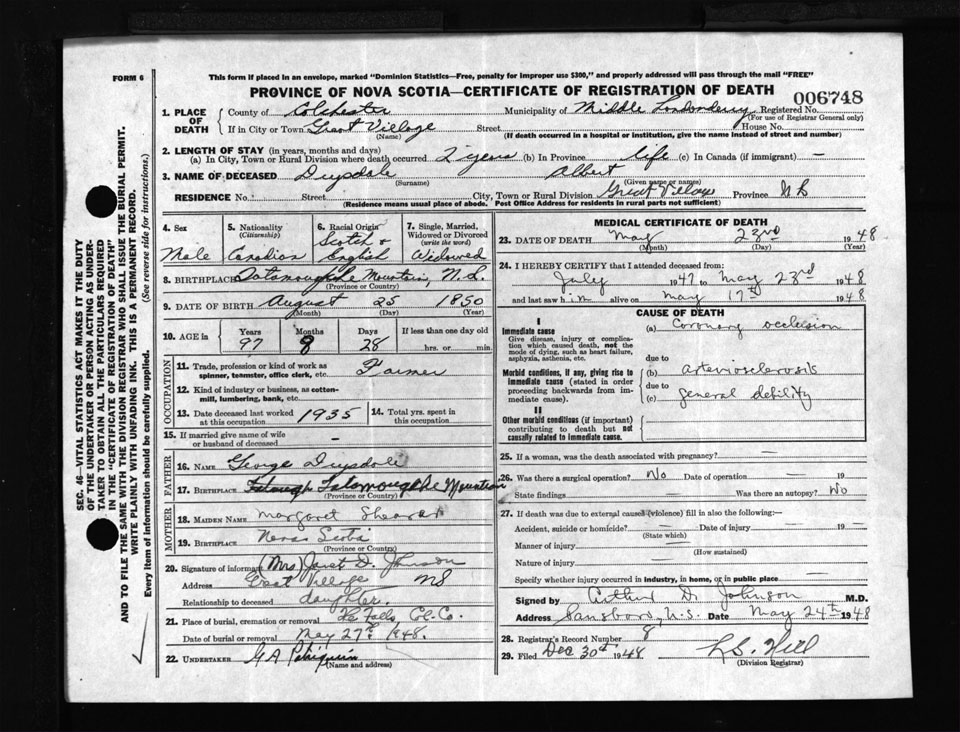 FORM 6
This form if placed in an envelope, marked "Dominion Statistics—Free, penalty for improper use $300," and properly addressed will pass through the mail "FREE"
PROVINCE OF NOVA SCOTIA—CERTIFICATE OF REGISTRATION OF DEATH
006748
1. PLACE OF DEATH
County of Colchester Municipality of Middle Londonderry Registered No.
(For use of Registrar General only)
If in City or Town Great Village Street House No.
(Name) (If death occurred in a hospital or institution, give the name instead of street and number)
2. LENGTH OF STAY (in years, months and days)
(a) In City, Town or Rural Division where death occurred 2 years (b) In Province life (c) In Canada (if immigrant) —
3. NAME OF DECEASED Drysdale Albert
(Surname) (Given name or names)
RESIDENCE No. Street City, Town or Rural Division Great Village Province N S
(Residence means usual place of abode. Post Office Address for residents in rural parts not sufficient)
4. Sex
Male
5. Nationality
(Citizenship)
Canadian
6. Racial Origin
Scotch & English
7. Single, Married, Widowed or Divorced
(write the word)
Widowed
8. BIRTHPLACE Mountain, N.S.
(Province or Country)
9. DATE OF BIRTH August 25 1850
(Month) (Day) (Year)
10. AGE in
Years Months Days If less than one day old
97 8 28 hrs. or min.
OCCUPATION
11. Trade, profession or kind of work as spinner, teamster, office clerk, etc. Farmer
12. Kind of industry or business, as cotton-mill, lumbering, bank, etc.
13. Date deceased last worked at this occupation 1935
14. Total yrs. spent in this occupation
15. If married give name of wife or husband of deceased –
FATHER
16. NAME George Drysdale
17. BIRTHPLACE Mountain
(Province or Country)
MOTHER
18. MAIDEN NAME Margaret
19. BIRTHPLACE Nova Scotia
(Province or Country)
20. Signature of informant (Mrs) Janet D. Johnson
Address Great Village NS
Relationship to deceased daughter.
21. Place of burial, cremation or removal The Falls, Col. Co.
Date of burial or removal May 27th 1948.
22. UNDERTAKER G A
(Name and address)
MEDICAL CERTIFICATE OF DEATH
23. DATE OF DEATH May 23rd 1948
(Month) (Day) (Year)
24. I HEREBY CERTIFY that I attended deceased from:
July 1947 to May 23rd 1948
and last saw him alive on May 17th 1948
CAUSE OF DEATH
I
Immediate cause
Give disease, injury or complication which caused death, not the mode of dying, such as heart failure, asphyxia, asthenia, etc.
(a) Coronary occlusion
due to
Morbid conditions, if any, giving rise to immediate cause (stated in order proceeding backwards from immediate cause).
(b) arteriosclerosis
due to
(c) general debility
II
Other morbid conditions (if important) contributing to death but not causally related to immediate cause.
25. If a woman, was the death associated with pregnancy? —
26. Was there a surgical operation? No Date of operation — 19
State findings — Was there an autopsy? No
27. If death was due to external causes (violence) fill in also the following:—
Accident, suicide or homicide? — Date of injury — 19 –
(State which)
Manner of injury —
(How sustained)
Nature of injury —
Specify whether injury occurred in industry, in home, or in public place —
Signed by Arthur D. Johnson M.D.
Address N.S. Date May 24th 1948
28. Registrar's Record Number 8
29. Filed Dec 30th 1948
L.S. Hill
(Division Registrar)
SEC. 46—VITAL STATISTICS ACT MAKES IT THE DUTY
OF THE UNDERTAKER OR PERSON ACTING AS UNDER-
TAKER TO OBTAIN ALL THE PARTICULARS REQUIRED
IN THE "CERTIFICATE OF REGISTRATION OF DEATH"
AND TO FILE THE SAME WITH THE DIVISION REGISTRAR WHO SHALL ISSUE THE BURIAL PERMIT.
WRITE PLAINLY WITH UNFADING INK. THIS IS A PERMANENT RECORD.
Every item of information should be carefully supplied. (See reverse side for instructions.)